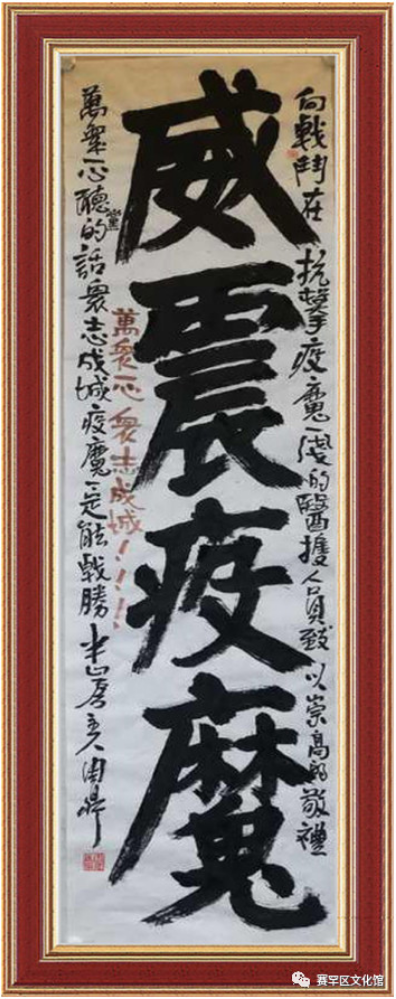 向戰鬥在抗擊疫魔一线的醫護人員致以崇高的敬禮
威震疫魔
萬衆一心衆志成城！！！！
萬衆一心聽黨的話衆志成城疫魔一定能戰勝
赛罕区文化馆